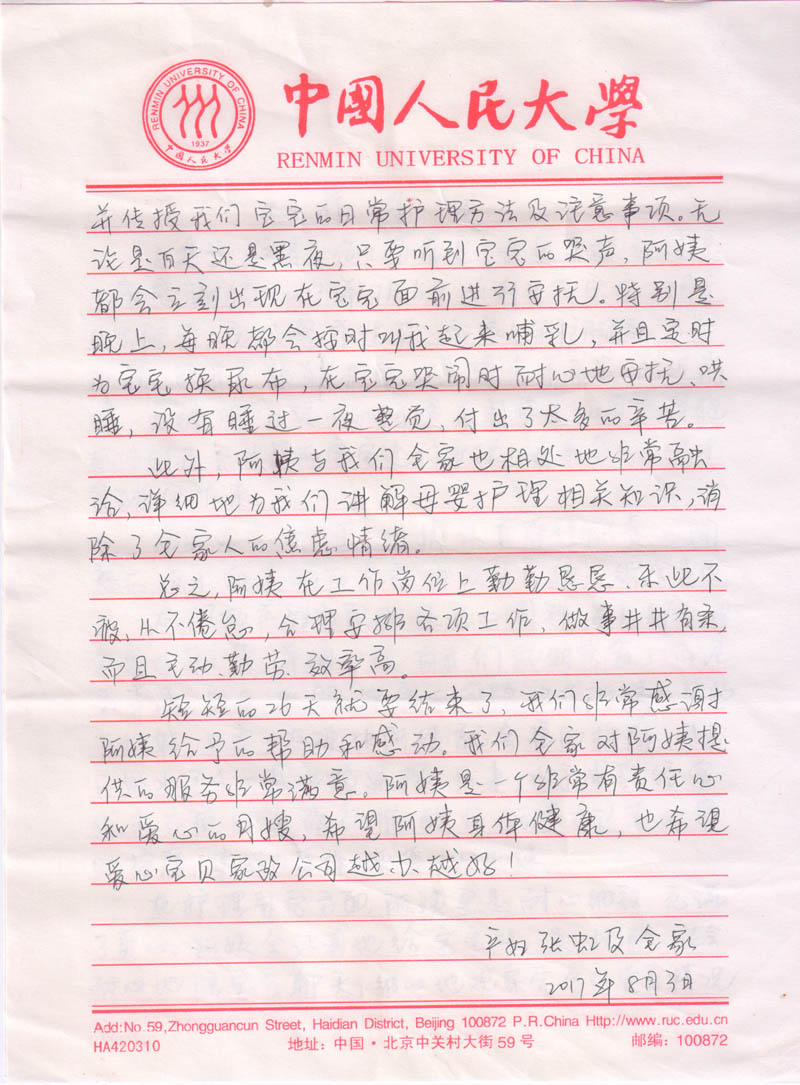 RENMIN UNIVERSITY OF CHINA
1937
中国人民大学
中國人民大学
RENMIN UNIVERSITY OF CHINA
并传授我们宝宝的日常护理方法及注意事项。无
论是百天还是黑夜,只要听到宝宝的哭声,阿姨
都会立刻出现在宝宝面前进行安抚。特别是
晚上,每晚都会按时叫我起来哺乳,并且定时
为宝宝换尿布,在宝宝哭闹时耐心地安抚、哄
睡,没有睡过一夜整觉,付出了太多的辛苦。
此外,阿姨与我们全家也相处地非常融
洽,详细地为我们讲解母婴护理相关知识,消
除了全家人的焦虑情绪。
总之,阿姨在工作岗位上勤勤恳恳、乐此不
疲、从不倦怠,合理安排各项工作、做事井井有条,
而且主动、勤劳、效率高。
短短的26天就要结束了,我们非常感谢
阿姨给予的帮助和感动。我们全家对阿姨提
供的服务非常满意。阿姨是一个非常有责任心
和爱心的月嫂,希望阿姨身体健康,也希望
爱心宝贝家政公司越办越好!
产妇张虹及全家
2017年8月3日
Add:No.59,Zhongguancun Street, Haidian District, Beijing 100872 P.R.China Http://www.ruc.edu.cn
HA420310 地址:中国·北京中关村大街59号 邮编:100872